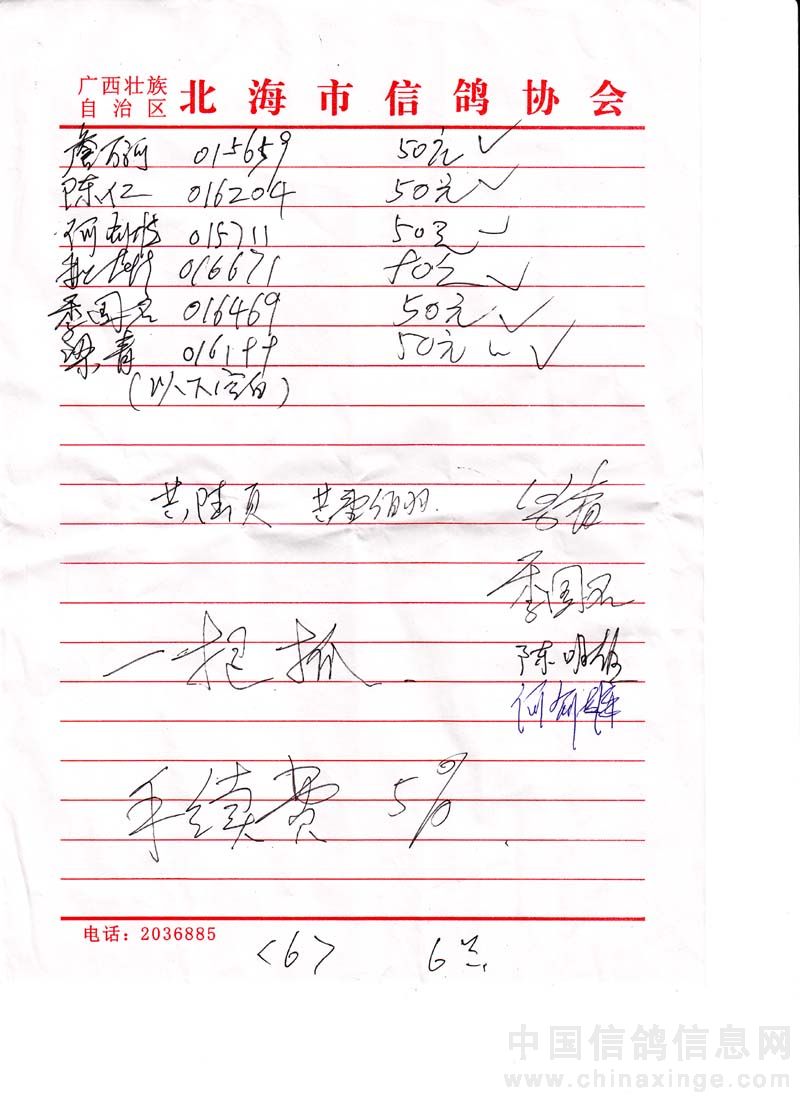 广西壮族
自治区 北海市信鸽协会
詹万河 015659 50元 ✓
陈仁 016204 50元 ✓
015711 50元 ✓
016671
季国名 016469 50元 ✓
梁青 50元 ✓
(以下空白)
共陆页
季国名
陈明雄
一把抓.
手续费 5%.
电话: 2036885
<6> 6只
中国信鸽信息网
www.chinaxinge.com